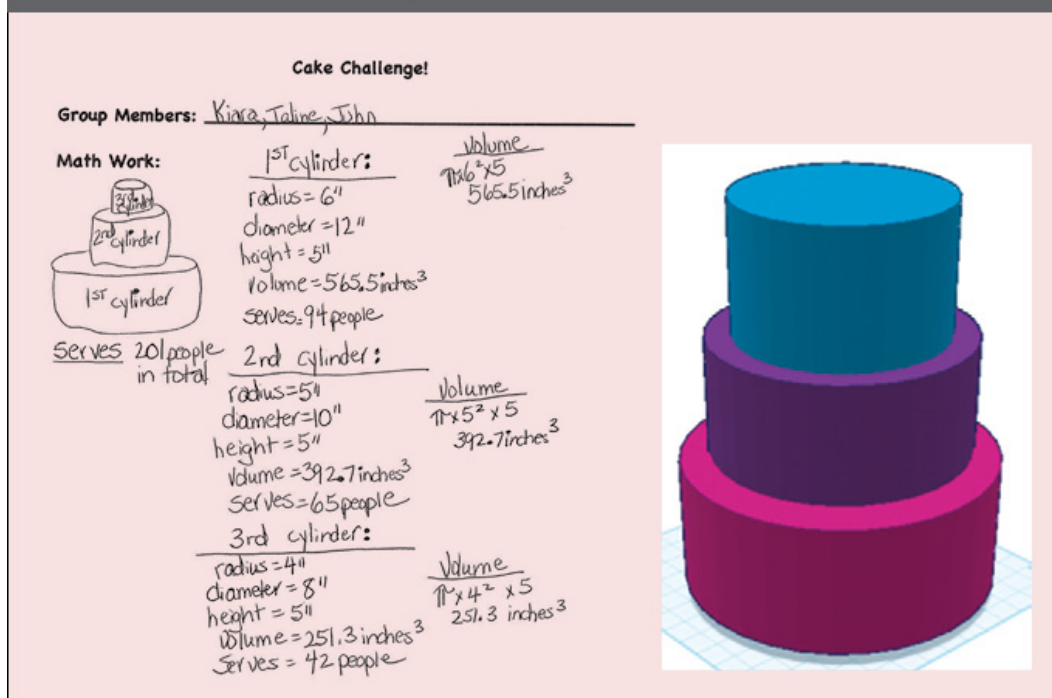 Cake Challenge!
Group Members: Kiara, Taline, John
Math Work:
3rd
cylinder
2nd cylinder
1ST cylinder
Serves 201 people
in total
1ST cylinder:
radius = 6"
diameter = 12"
height = 5"
volume = 565.5 inches³
serves = 94 people
Volume
π x 6² x 5
565.5 inches³
2nd cylinder:
radius = 5"
diameter = 10"
height = 5"
volume = 392.7 inches³
serves = 65 people
Volume
π x 5² x 5
392.7 inches³
3rd cylinder:
radius = 4"
diameter = 8"
height = 5"
volume = 251.3 inches³
Serves = 42 people
Volume
π x 4² x 5
251.3 inches³